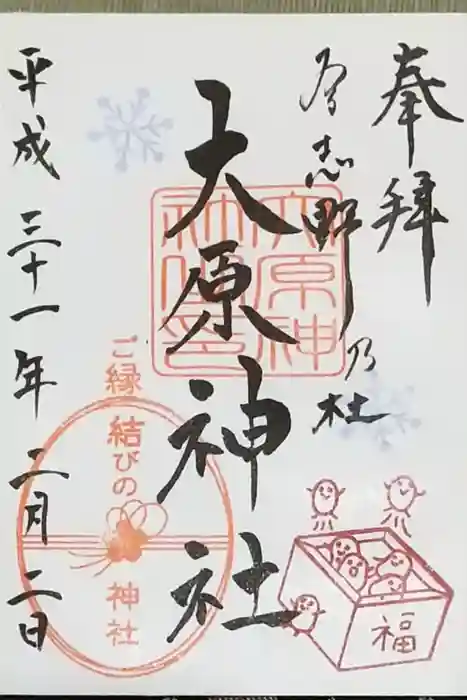 奉拝
習志野乃杜
大原神社
大原神社印
ご縁結びの神社
福
平成三十一年二月二日